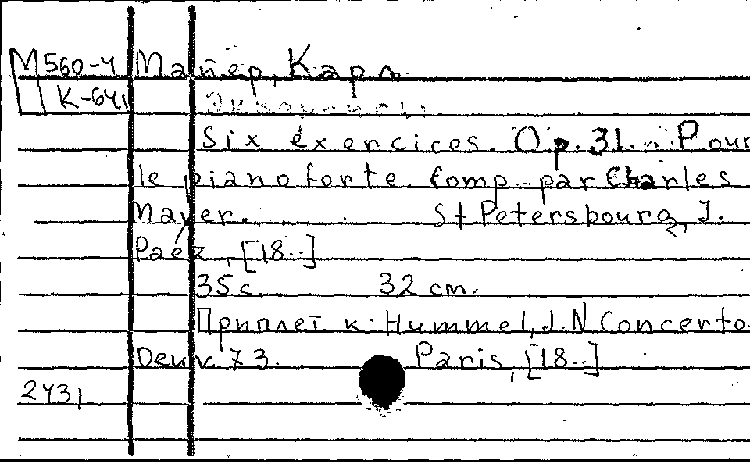 М560-4 Майер, Карл
К-641
Six exercices. Op. 31. Pour
le pianoforte. Comp. par Charles
Mayer. St Petersbourg, J.
Paëz, [18..]
35 с. 32 cm.
Приплет к: Hummel, J. N Concerto.
Oeuv. 73. Paris, [18..]
2431